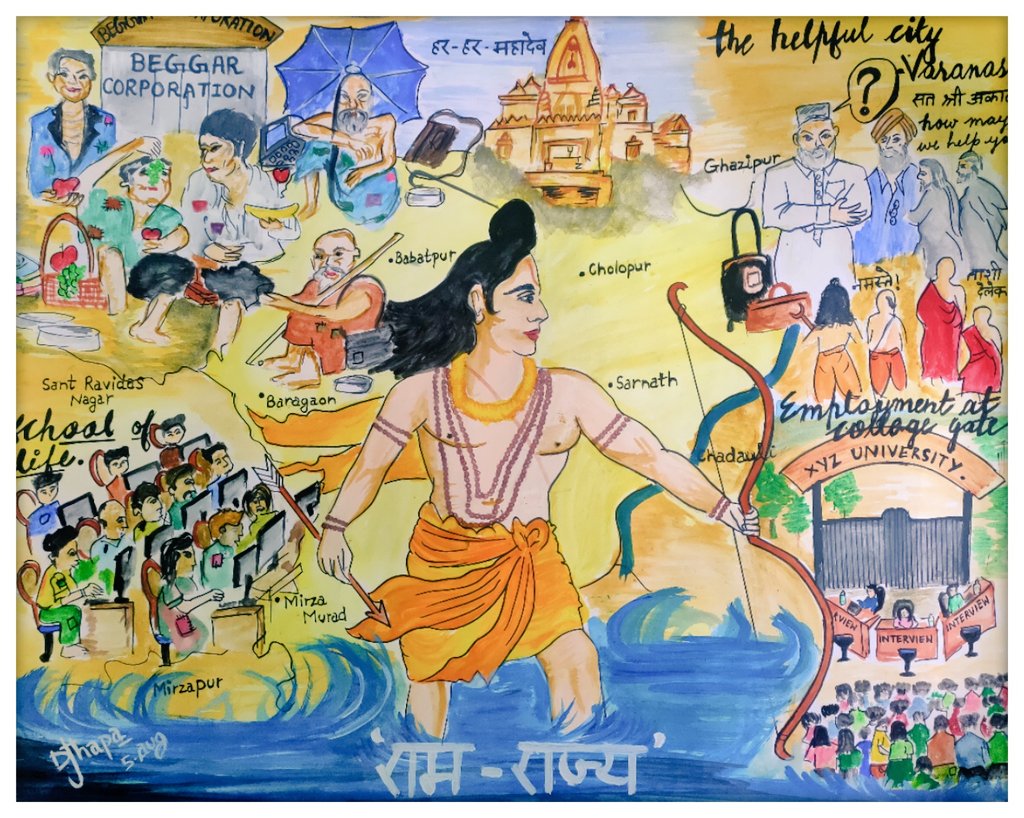 BEGGAR CORPORATION
BEGGAR
CORPORATION
हर-हर-महादेव
the helpful city
Varanas
?
सत श्री अकाल
how may
we help yo
Ghazipur
Babatpur
Cholopur
नमस्ते!
ताशी
देलेक
Sant Ravidas
Nagar
Baragaon
Sarnath
School of
life.
Employment at
college gate
Chadauli
XYZ UNIVERSITY.
Mirza
Murad
INTERVIEW
INTERVIEW
Mirzapur
'राम-राज्य'